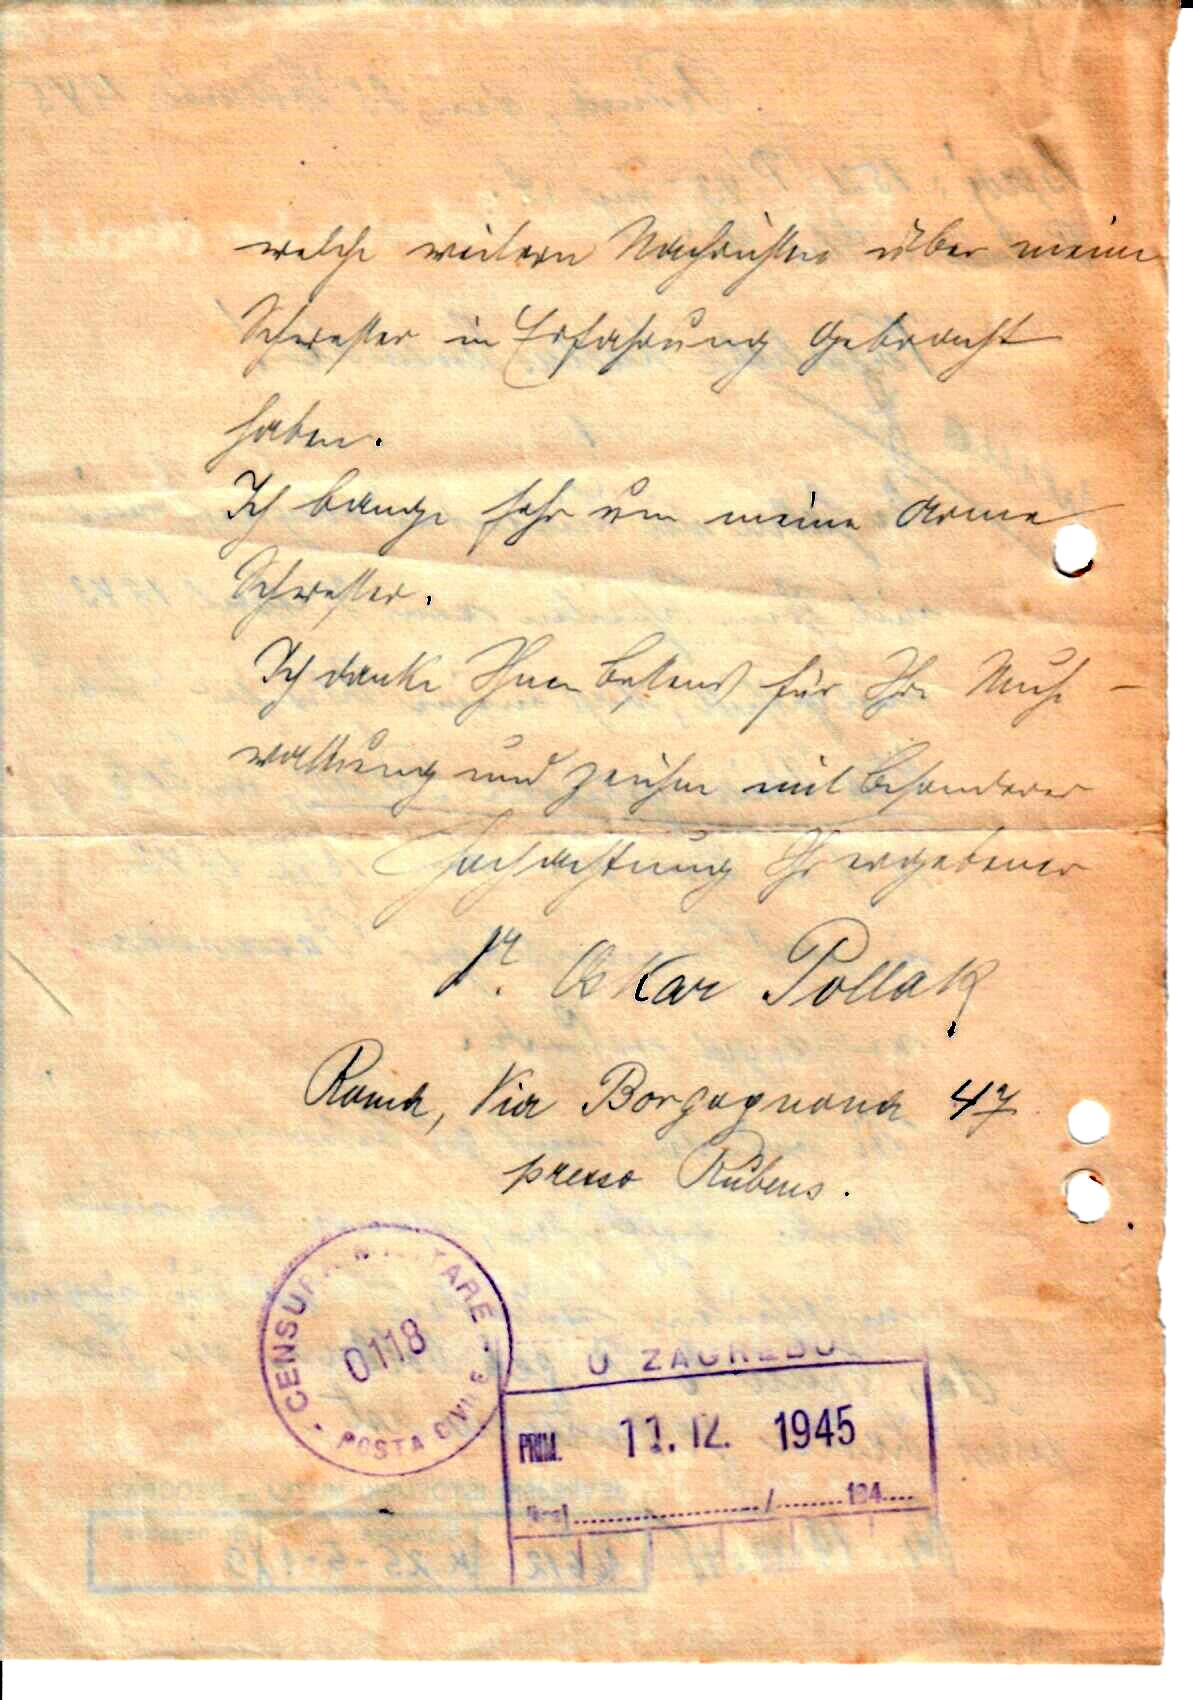 welche weitern Nachrichten über meine
Schwester in Erfahrung gebracht
haben.
Ich bange sehr um meine arme
Schwester.
Ich danke Ihnen bestens für Ihre Mühe-
waltung und zeichne mit besonderer
Hochachtung Ihr ergebener
Dr. Oskar Pollak
Roma, Via Borgognona 47
presso Rubens.
CENSURA MILITARE
0118
POSTA CIVILE
U ZAGREBU
PRIM. 11. 12. 1945
/ 194